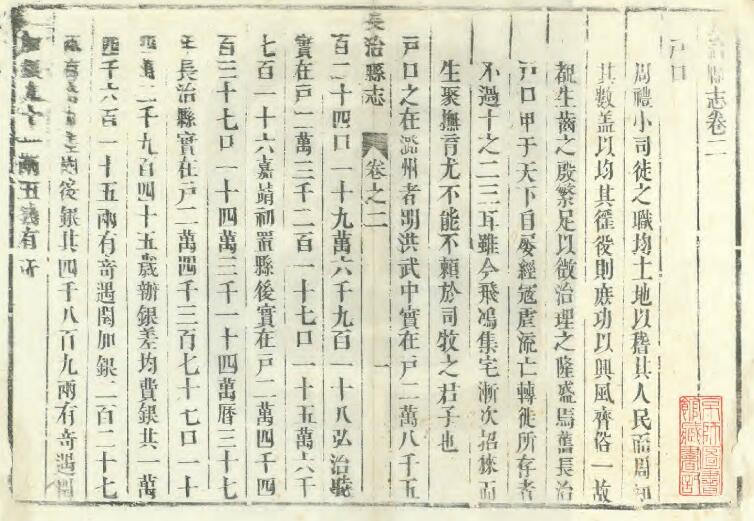 治縣志卷二
戶口
周禮小司徒之職均土地以稽其人民而周知
其數蓋以均其徭役則庶功以興風齊俗一故
觀生齒之殷繁足以徵治理之隆盛焉舊長治
戶口甲于天下自屢經寇虐流亡轉徙所存者
不過十之二三耳雖今飛鴻集宅漸次招徠而
生聚撫育尤不能不賴於司牧之君子也
戶口之在潞州者明洪武中實在戶二萬八千五
長治縣志 卷之二 一
百二十四口一十九萬六千九百一十八弘治
實在戶二萬三千二百一十七口一十五萬六千
七百一十六嘉靖初置縣後實在戶二萬四千四
百三十七口一十四萬三千一十四萬曆三十七
年長治縣實在戶二萬四千三百七十七口一十
二千九百四十五歲辦銀差均費銀共 萬
四千六百一十五兩有奇遇閏加銀二百二十七
役銀共四千八百九兩有奇遇閏
兩五錢有奇
京師圖書館藏書記